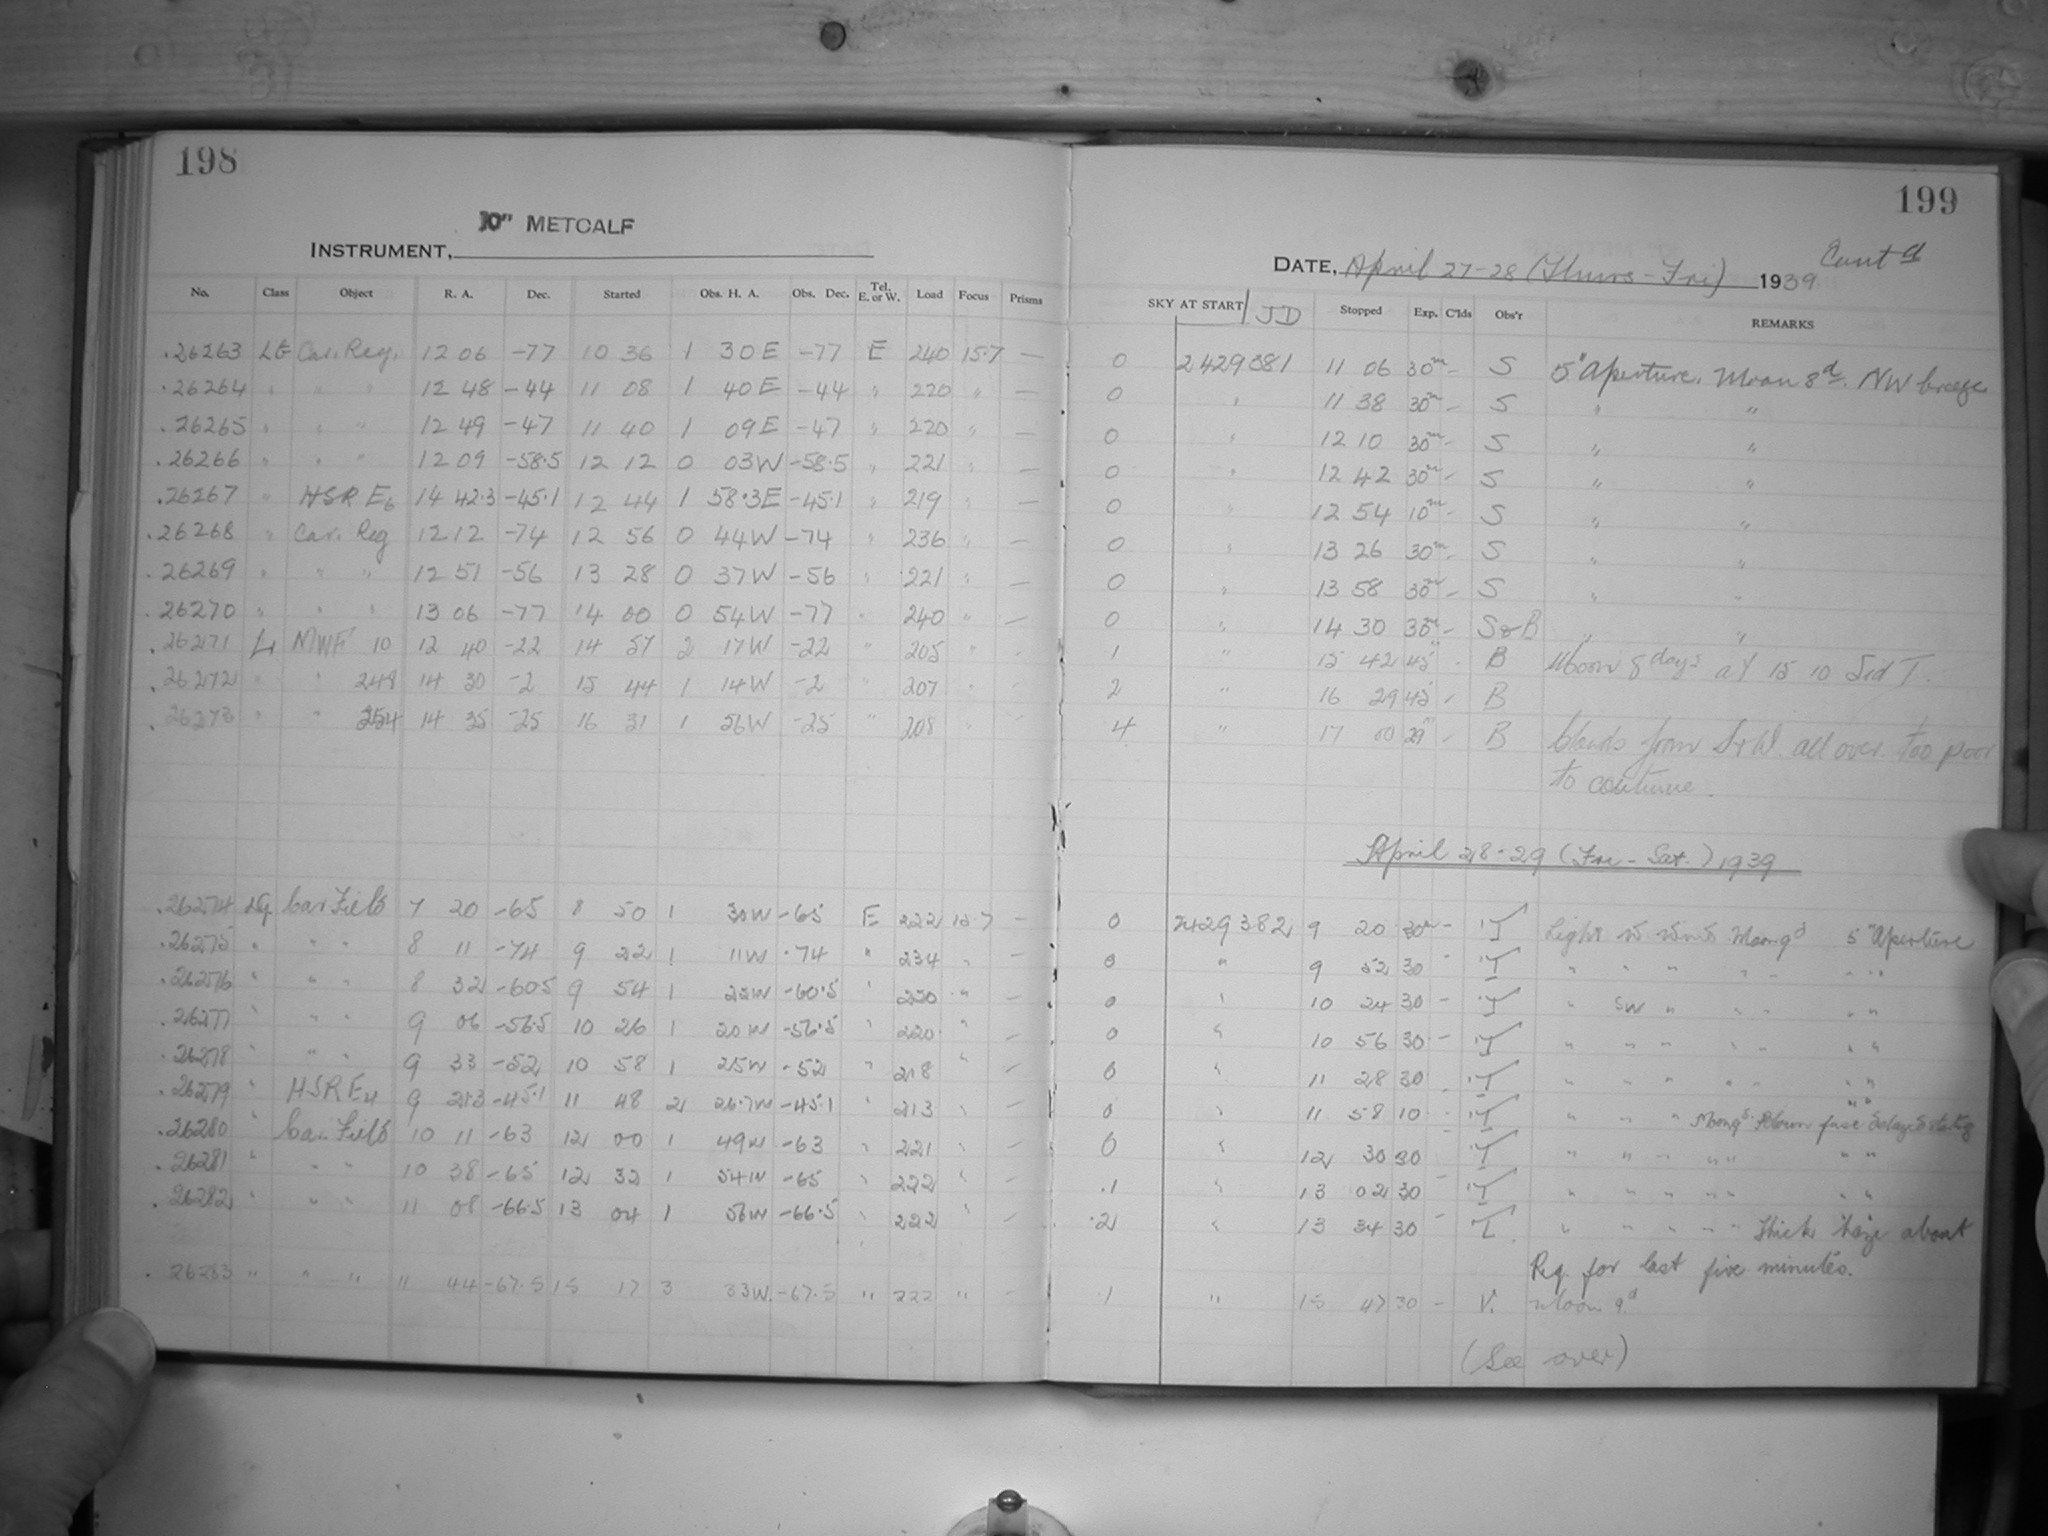 198
10" METCALF
INSTRUMENT,
No. Class Object R. A. Dec. Started Obs. H. A. Obs. Dec. Tel. E. or W. Load Focus Prisms
.26263 LG Car. Reg. 12 06 -77 10 36 1 30 E -77 E 240 15.7 —
.26264 " " " 12 48 -44 11 08 1 40 E -44 " 220 " —
.26265 " " " 12 49 -47 11 40 1 09 E -47 " 220 " —
.26266 " " " 12 09 -58.5 12 12 0 03 W -58.5 " 221 " —
.26267 " HSR E6 14 42.3 -45.1 12 44 1 58.3 E -45.1 " 219 " —
.26268 " Car. Reg 12 12 -74 12 56 0 44 W -74 " 236 " —
.26269 " " " 12 51 -56 13 28 0 37 W -56 " 221 " —
.26270 " " " 13 06 -77 14 00 0 54 W -77 " 240 " —
.26271 L MWF 10 12 40 -22 14 57 2 17 W -22 " 205 " -
.26272 " " 248 14 30 -2 15 44 1 14 W -2 " 207 " -
.26273 " " 254 14 35 -25 16 31 1 56 W -25 " 208 " -
.26274 LG Car Field 7 20 -65 8 50 1 30 W -65 E 222 15.7 —
.26275 " " " 8 11 -74 9 22 1 11 W -74 " 234 " —
.26276 " " " 8 32 -60.5 9 54 1 22 W -60.5 " 220 " —
.26277 " " " 9 06 -56.5 10 26 1 20 W -56.5 " 220 " —
.26278 " " " 9 33 -52 10 58 1 25 W -52 " 218 " —
.26279 " HSR E4 9 21.3 -45.1 11 48 2 26.7 W -45.1 " 213 " —
.26280 " Car. Field 10 11 -63 12 00 1 49 W -63 " 221 " —
.26281 " " " 10 38 -65 12 32 1 54 W -65 " 222 " —
.26282 " " " 11 08 -66.5 13 04 1 56 W -66.5 " 222 " —
.26283 " " " 11 44 -67.5 15 17 3 33 W -67.5 " 222 " —
199
DATE, April 27-28 (Thurs-Fri) 1939 Cont d
SKY AT START JD Stopped Exp. C'lds Obs'r REMARKS
0 2429081 11 06 30m - S 5" Aperture. Moon 8d. NW breeze
0 " 11 38 30m - S " "
0 " 12 10 30m - S " "
0 " 12 42 30m - S " "
0 " 12 54 10m - S " "
0 " 13 26 30m - S " "
0 " 13 58 30m - S " "
0 " 14 30 30m - S&B " "
1 " 15 42 45 - B Moon 8 days at 15 10 Sid T.
2 " 16 29 45 - B
4 " 17 00 29 - B Clouds from S+W. all over. too poor
to continue.
April 28-29 (Fri-Sat.) 1939
0 2429382 9 20 30m - T Light W wind Moon 9d 5" Aperture
0 " 9 52 30 - T " " " " " " "
0 " 10 24 30 - T " SW " " " " "
0 " 10 56 30 - T " " " " " " "
0 " 11 28 30 T " " " " " " "
0 " 11 58 10 - T " " " Moon 9d. Blown fuse delayed starting
0 " 12 30 30 T " " " " " " "
.1 " 13 02 30 - T " " " " " " "
.2 " 13 34 30 - T " " " " " Thick haze about
Reg. for last five minutes.
1 " 15 47 30 - V. Moon 9.d
(See over)